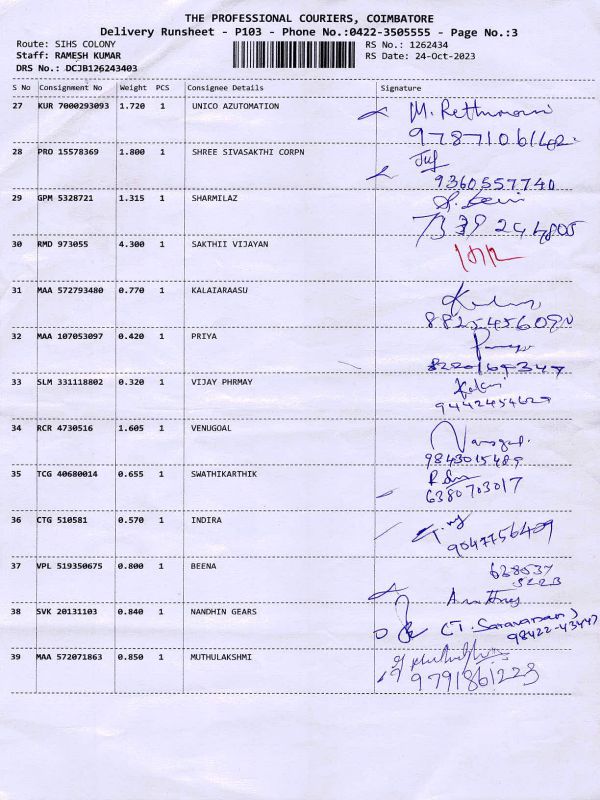 THE PROFESSIONAL COURIERS, COIMBATORE
Delivery Runsheet - P103 - Phone No.:0422-3505555 - Page No.:3
Route: SIHS COLONY RS No.: 1262434
Staff: RAMESH KUMAR RS Date: 24-Oct-2023
DRS No.: DCJB126243403
S No Consignment No Weight PCS Consignee Details Signature
27 KUR 7000293093 1.720 1 UNICO AZUTOMATION
9787106142
28 PRO 15578369 1.800 1 SHREE SIVASAKTHI CORPN
9360557740
29 GPM 5328721 1.315 1 SHARMILAZ
30 RMD 973055 4.300 1 SAKTHI VIJAYAN
31 MAA 572793480 0.770 1 KALAIARAASU
32 MAA 107053097 0.420 1 PRIYA
8220169347
33 SLM 331118802 0.320 1 VIJAY PHRMAY
34 RCR 4730516 1.605 1 VENUGOAL
9843015489
35 TCG 40680014 0.655 1 SWATHIKARTHIK
6380703017
36 CTG 510581 0.570 1 INDIRA
9047756409
37 VPL 519350675 0.800 1 BEENA
38 SVK 20131103 0.840 1 NANDHIN GEARS
(T. Saravanan)
98422-43447
39 MAA 572071863 0.850 1 MUTHULAKSHMI
9791861223